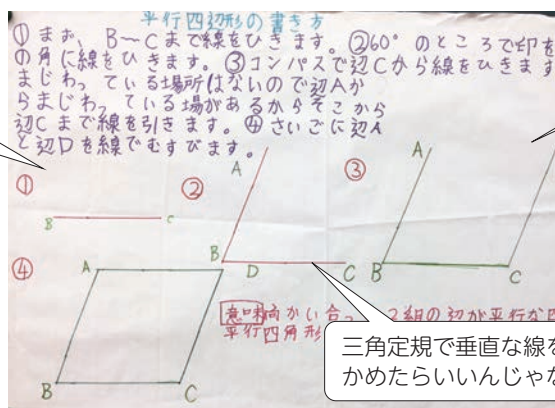 平行四辺形の書き方
①まず、B〜Cまで線をひきます。②60°のところで印を
の角に線をひきます。③コンパスで辺Cから線をひきます
まじわっている場所はないので辺Aか
らまじわっている場があるからそこから
辺Cまで線を引きます。④さいごに辺A
と辺Dを線でむすびます。
①
B C
②
A
B D C
③
A
B C
④
A
B C
意味 向かい合っ 2組の辺が平行な
平行四角形
三角定規で垂直な線を
かめたらいいんじゃな